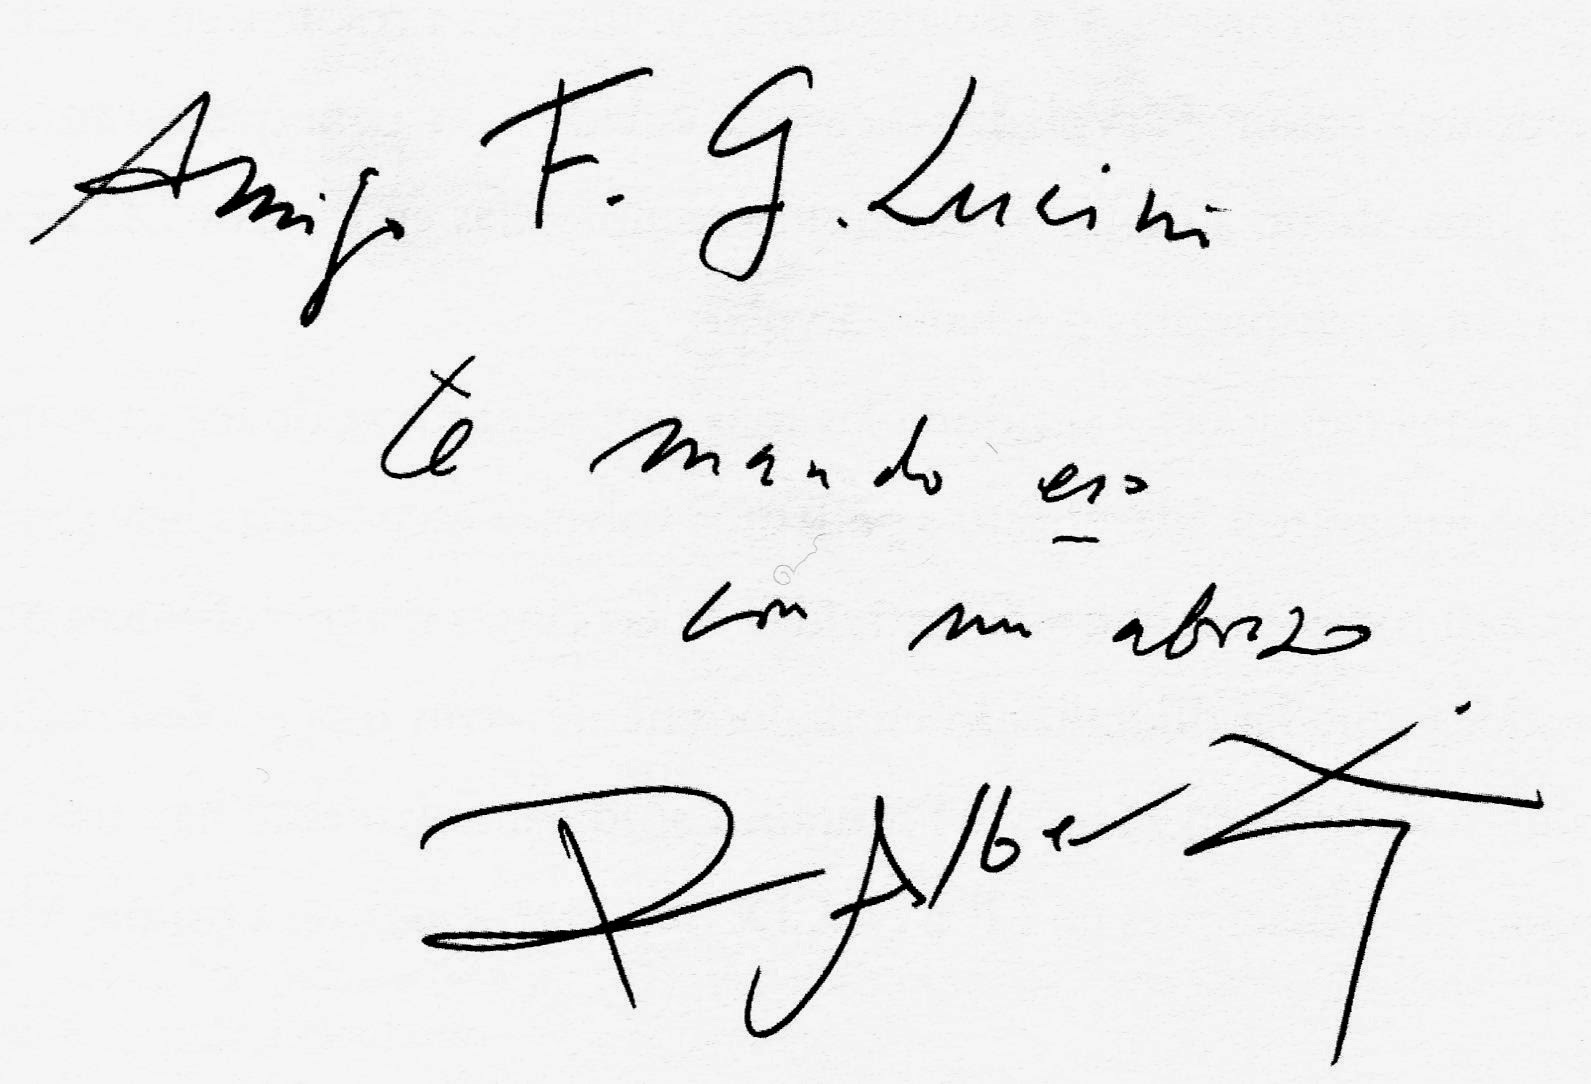 Amigo F. G. Lucini
te mando eso
con un abrazo
R. Alberti